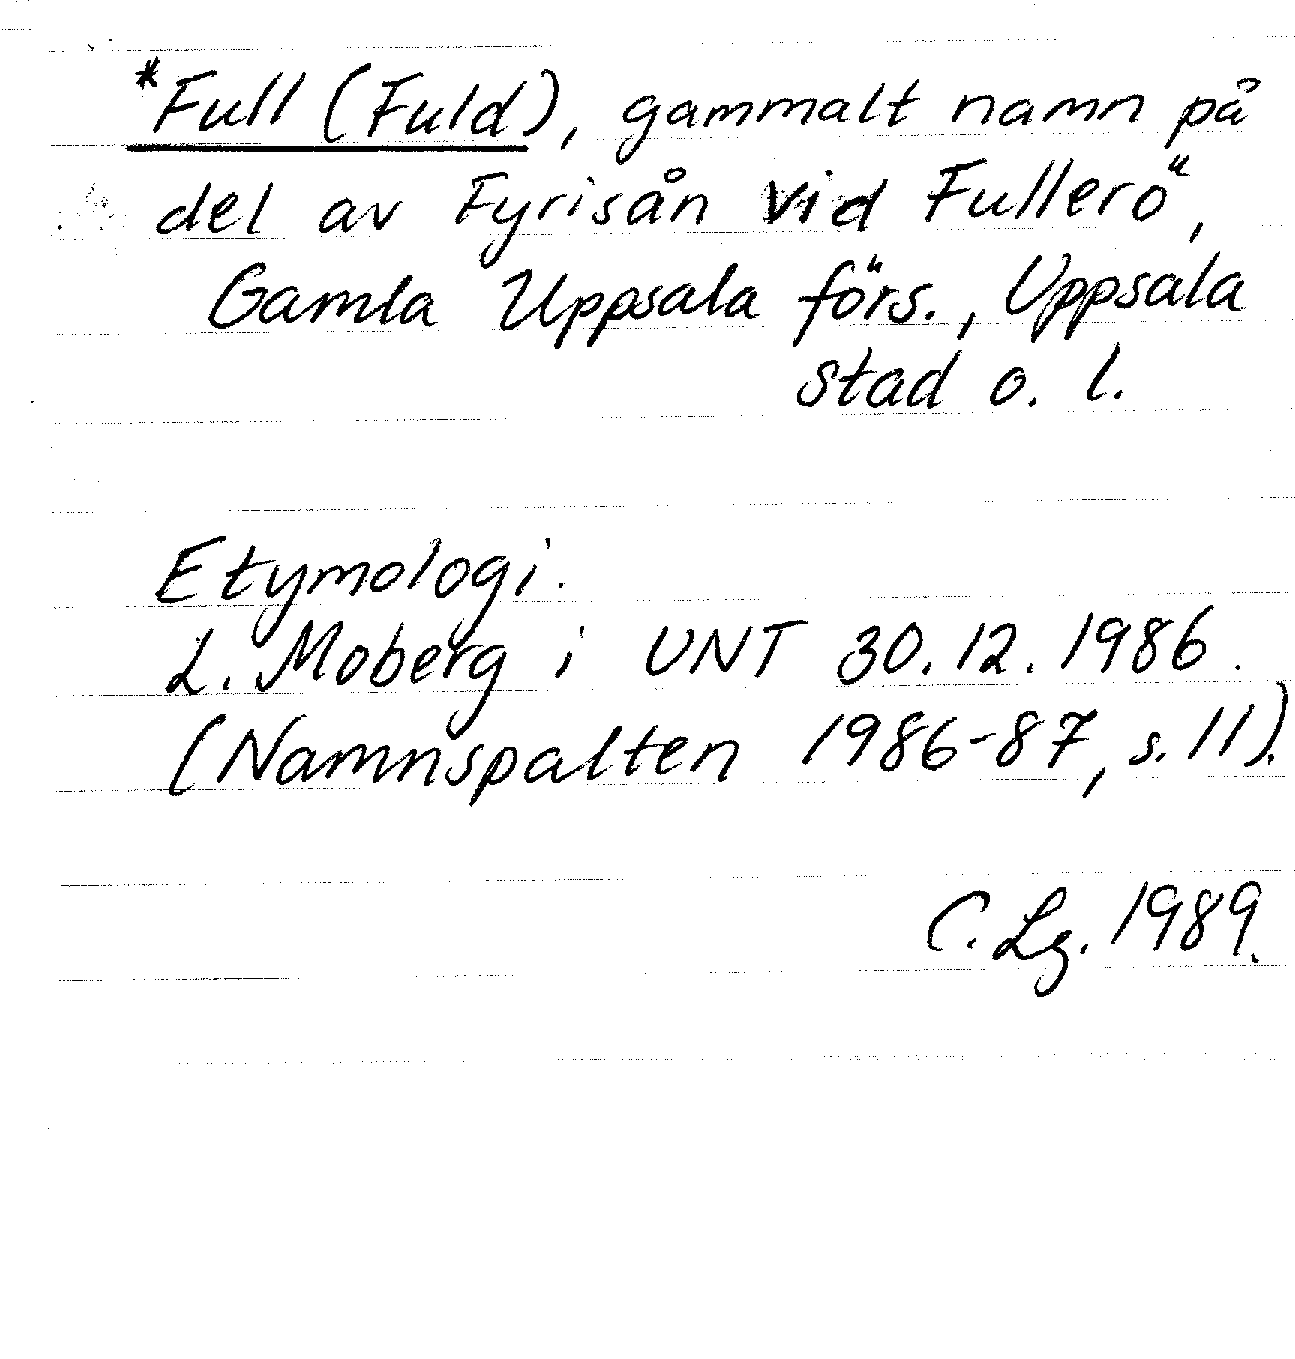 *Full (Fuld), gammalt namn på
del av Fyrisån vid Fullerö,
Gamla Uppsala förs., Uppsala
stad o. l.
Etymologi.
L. Moberg i UNT 30.12.1986.
(Namnspalten 1986-87, s. 11).
C. Lg. 1989.